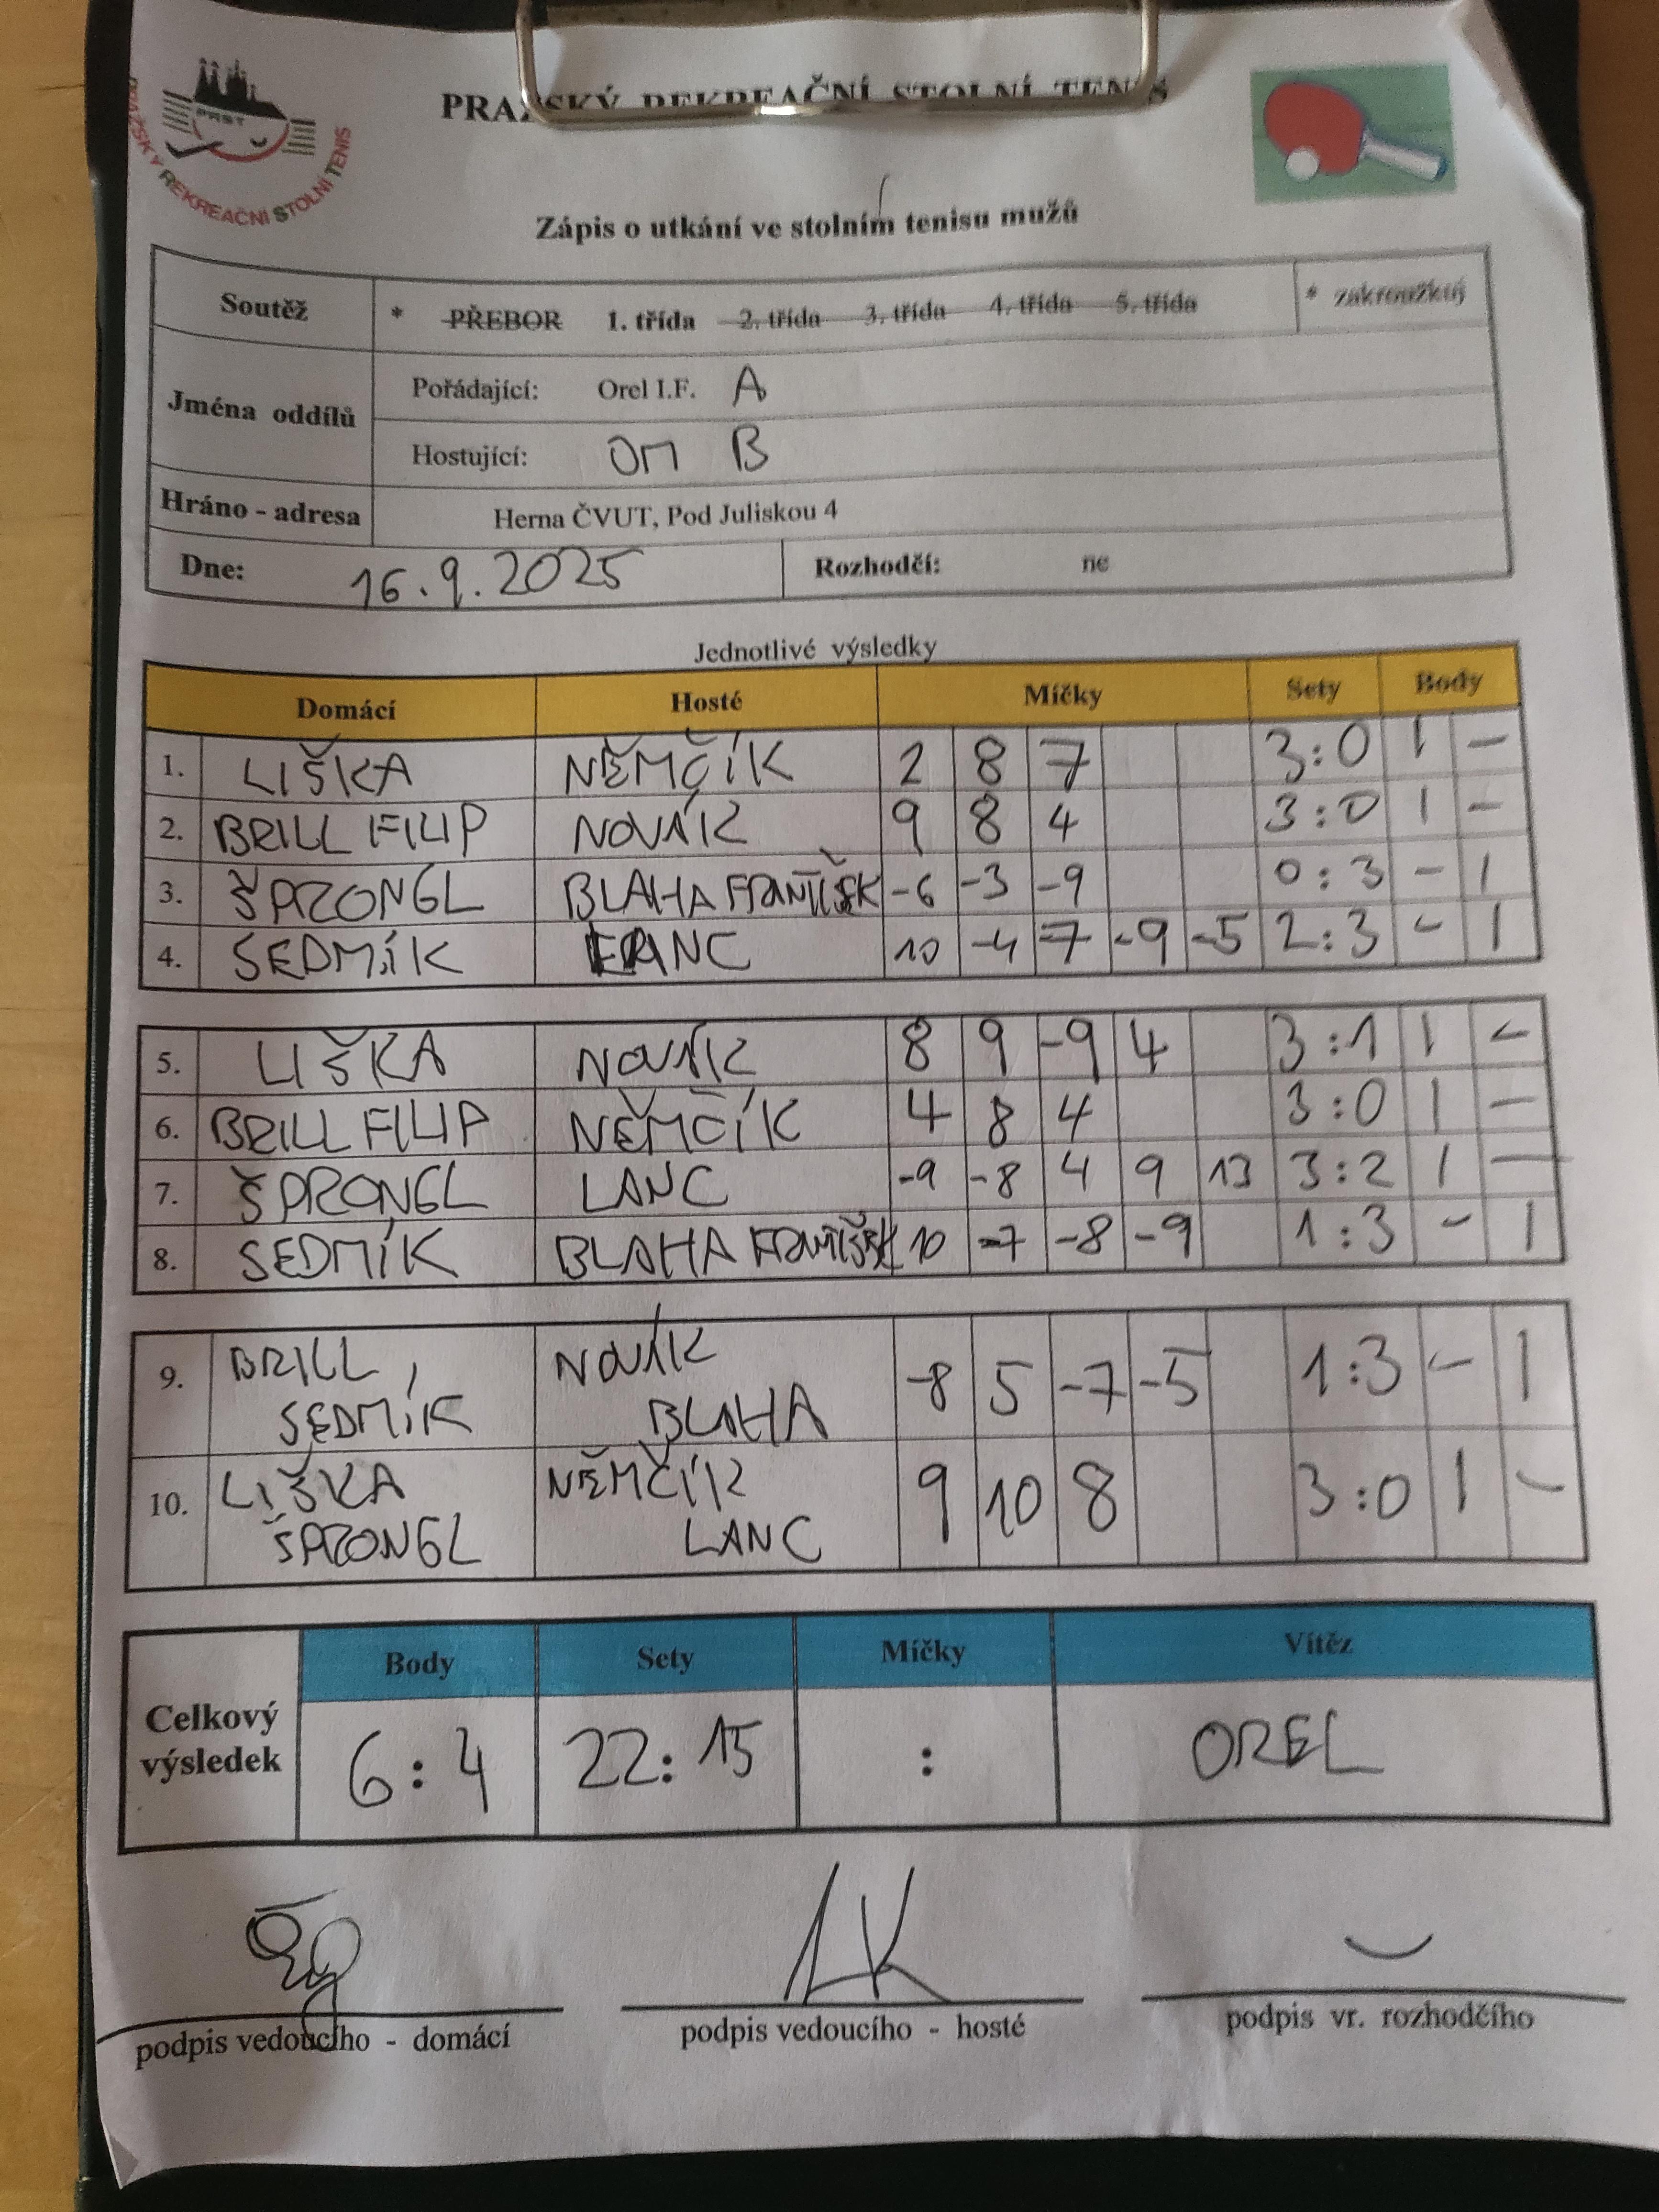 PRAŽSKÝ REKREAČNÍ STOLNÍ TENIS
PRST
PRAŽSKÝ REKREAČNÍ STOLNÍ TENIS
Zápis o utkání ve stolním tenisu mužů
Soutěž * PŘEBOR 1. třída 2. třída 3. třída 4. třída 5. třída * zakroužkuj
Jména oddílů
Pořádající: Orel I.F. A
Hostující: OM B
Hráno - adresa Herna ČVUT, Pod Juliskou 4
Dne: 16.9.2025 Rozhodčí: ne
Jednotlivé výsledky
Domácí Hosté Míčky Sety Body
1. LIŠKA NĚMČÍK 2 8 7 3:0 1 -
2. BRILL FILIP NOVÁK 9 8 4 3:0 1 -
3. ŠPRONGL BLAHA FRANTIŠEK -6 -3 -9 0:3 - 1
4. SEDMÍK LANC 10 -4 -7 -9 -5 2:3 - 1
5. LIŠKA NOVÁK 8 9 -9 4 3:1 1 -
6. BRILL FILIP NĚMČÍK 4 8 4 3:0 1 -
7. ŠPRONGL LANC -9 -8 4 9 13 3:2 1 -
8. SEDMÍK BLAHA FRANTIŠEK 10 -7 -8 -9 1:3 - 1
9. BRILL, SEDMÍK NOVÁK BLAHA -8 5 -7 -5 1:3 - 1
10. LIŠKA ŠPRONGL NĚMČÍK LANC 9 10 8 3:0 1 -
Body Sety Míčky Vítěz
Celkový výsledek 6:4 22:15 : OREL
podpis vedoucího - domácí podpis vedoucího - hosté podpis vr. rozhodčího